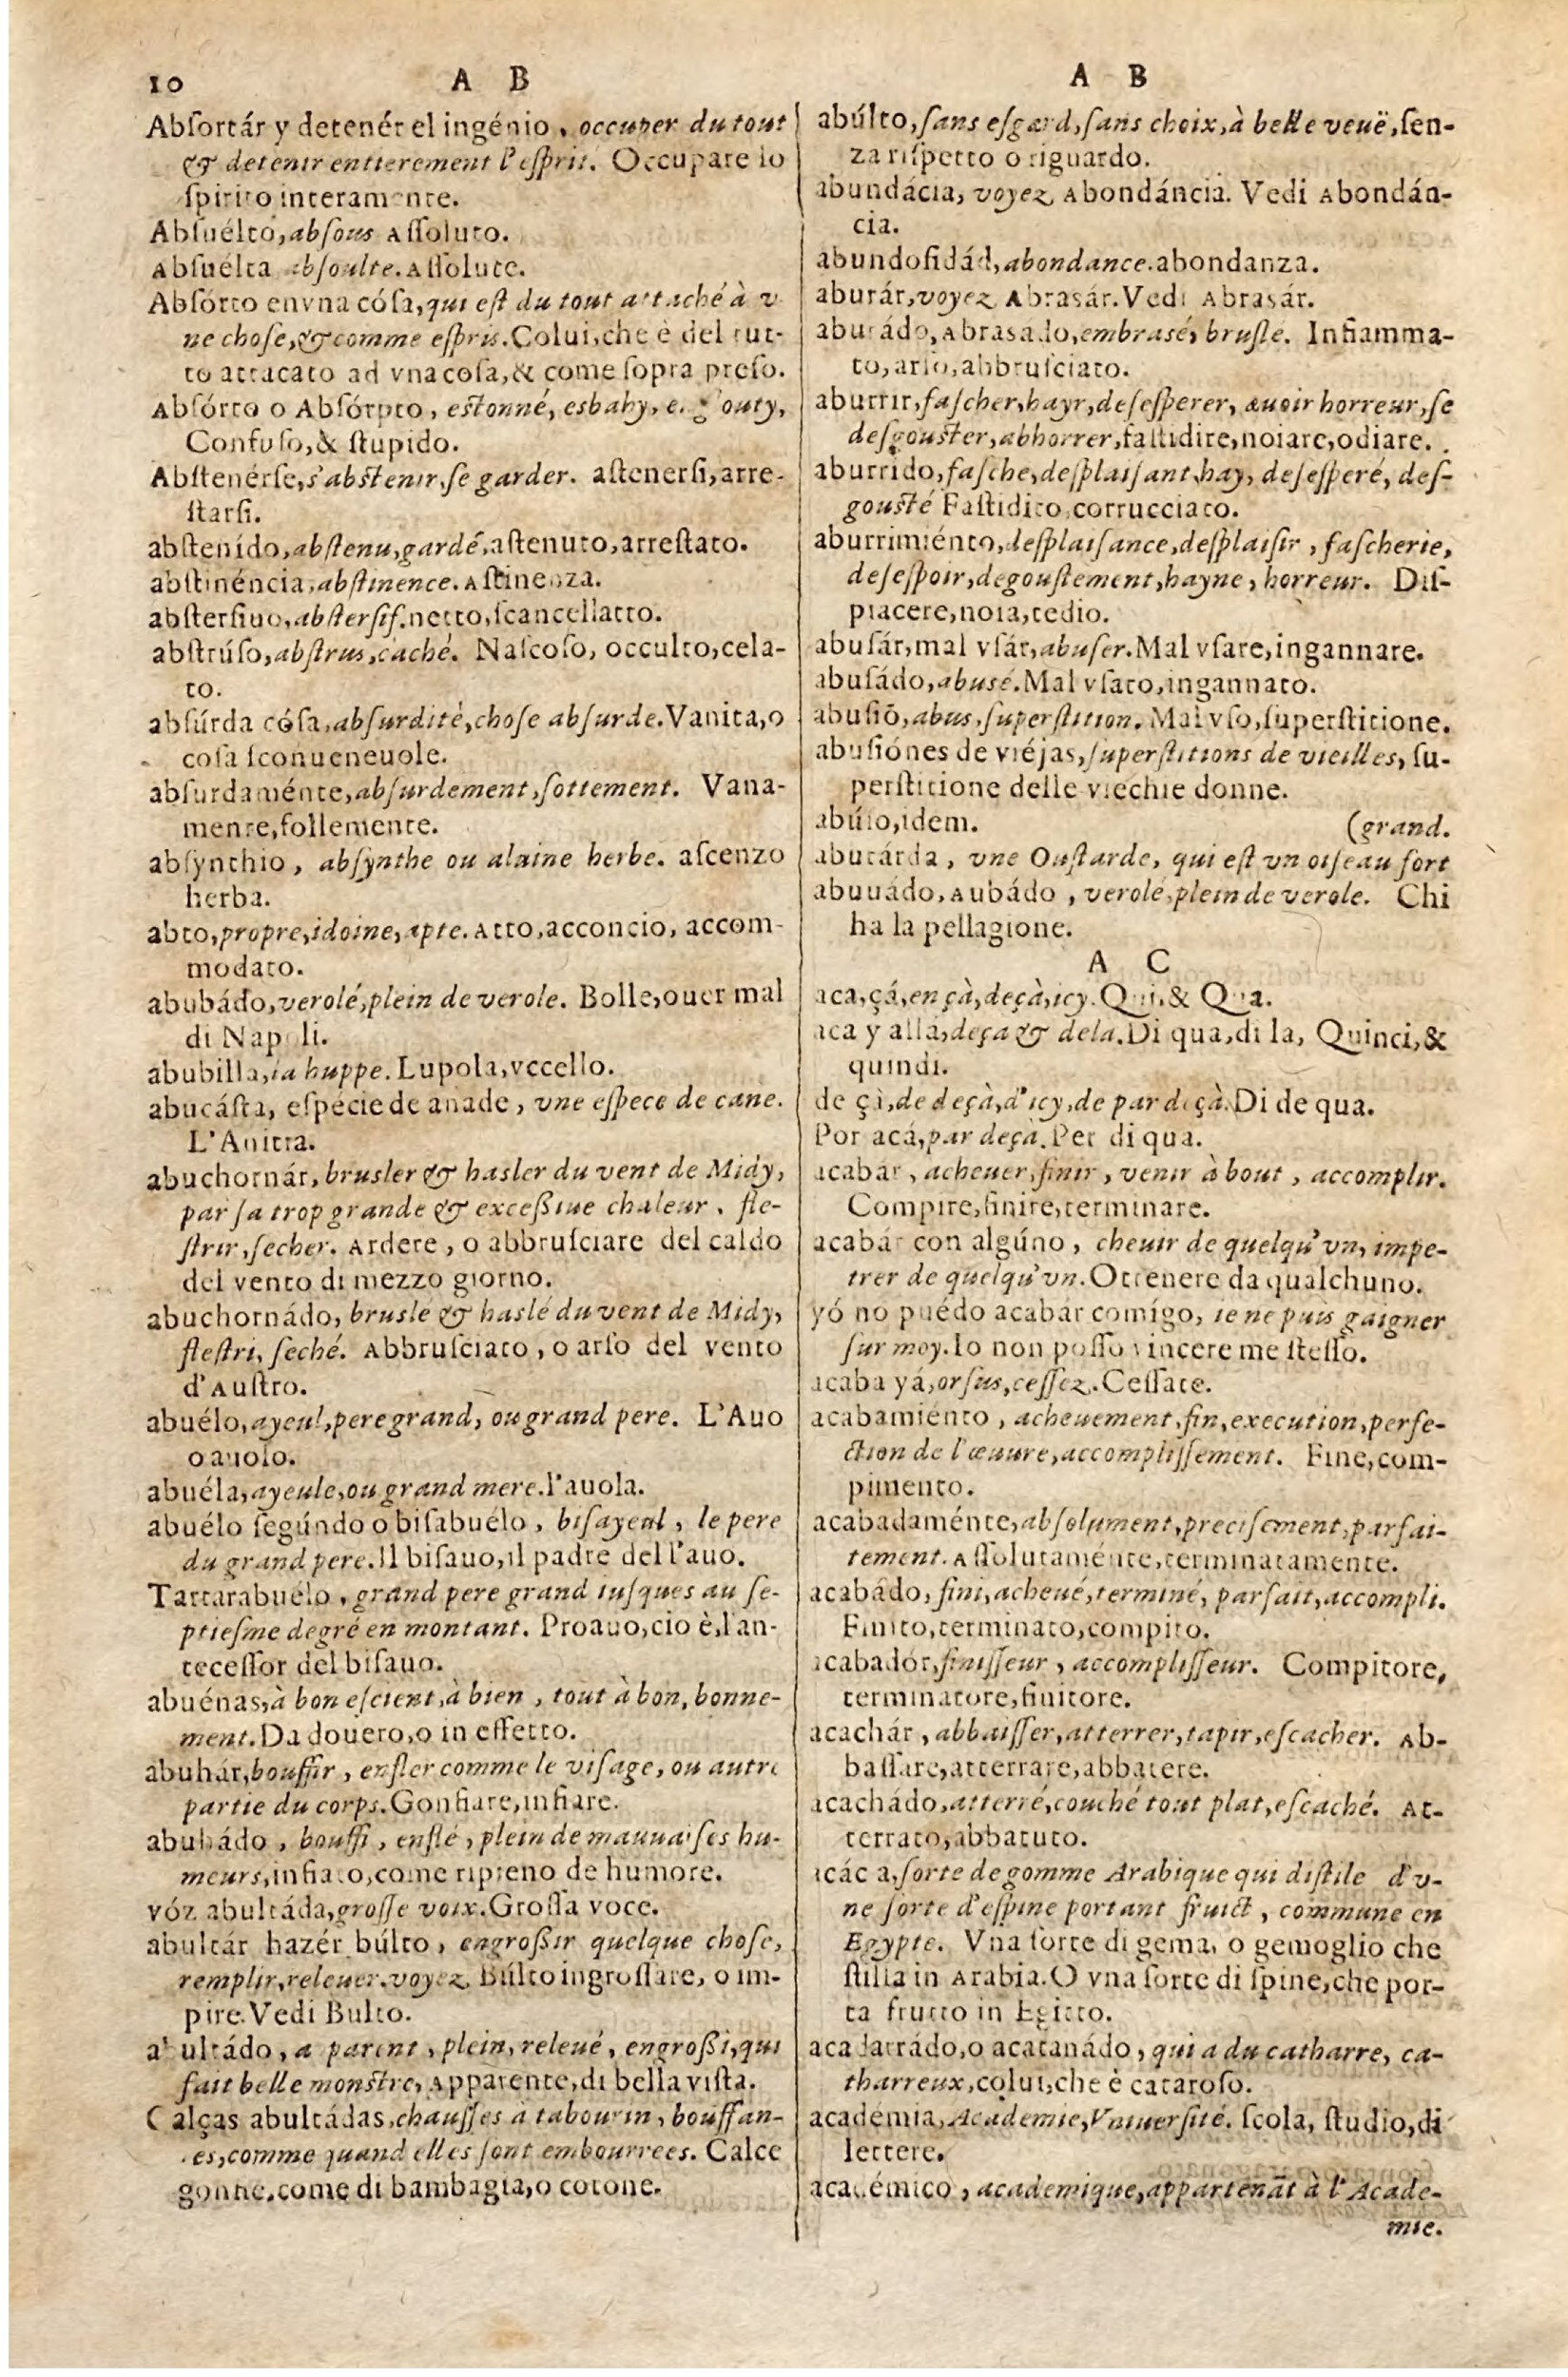 10 A B
Abſortár y detenér el ingénio, occuper du tout
& detenir entierement l'eſprit. Occupare lo
ſpirito interamente.
Abſuélto, abſous Aſſoluto.
Abſuélta abſoulte. Aſſolute.
Abſórto en vna cóſa, qui eſt du tout attaché à v
ne choſe, & comme eſpris. Colui, che è del tut-
to attacato ad vna coſa, & come ſopra preſo.
Abſórto o Abſórpto, eſtonné, esbahy,
Confuſo, & ſtupido.
Abſtenérſe, s'abſtenir, ſe garder. aſtenerſi, arre-
ſtarſi.
abſtenído, abſtenu, gardé, aſtenuto, arreſtato.
abſtinéncia, abſtinence. Aſtinenza.
abſterſiuo, abſterſif. netto, ſcancellatto.
abſtrúſo, abſtrus, caché. Naſcoſo, occulto, cela-
to.
abſúrda cóſa, abſurdité, choſe abſurde. Vanita, o
coſa ſconueneuole.
abſurdaménte, abſurdement, ſottement. Vana-
mente, follemente.
abſynthio, abſynthe ou aluine herbe. aſcenzo
herba.
abto, propre, idoine, apte. Atto, acconcio, accom-
modato.
abubádo, verolé, plein de verole. Bolle, ouer mal
di Napoli.
abubilla, la huppe. Lupola, vccello.
abucáſta, eſpécie de anade, vne eſpece de cane.
L'Anitra.
abuchornár, brusler & hasler du vent de Midy,
par ſa trop grande & exceßiue chaleur, fle-
ſtrir, ſecher. Ardere, o abbruſciare del caldo
del vento di mezzo giorno.
abuchornádo, brusle & haslé du vent de Midy,
fleſtri, ſeché. Abbruſciato, o arſo del vento
d'Auſtro.
abuélo, ayeul, pere grand, ou grand pere. L'Auo
o auolo.
abuéla, ayeule, ou grand mere. l'auola.
abuélo ſegúndo o biſabuélo, biſayeul, le pere
du grand pere. Il biſauo, il padre dell'auo.
Tartarabuélo, grand pere grand iuſques au ſe-
ptieſme degré en montant. Proauo, cio è, l'an-
teceſſor del biſauo.
abuénas, à bon eſcient, à bien, tout à bon, bonne-
ment. Da douero, o in effetto.
abuhár, bouffir, enfler comme le viſage, ou autre
partie du corps. Gonfiare, infiare.
abuhádo, bouffi, enflé, plein de mauuaiſes hu-
meurs, infiato, come ripieno de humore.
vóz abultáda, groſſe voix. Groſſa voce.
abultár hazér búlto, engroßir quelque choſe,
remplir, releuer. voyez Búlto ingroſſare, o im-
pire. Vedi Bulto.
abultádo, a parent, plein, releué, engroßi, qui
fait belle monſtre, Apparente, di bella viſta.
Calças abultádas, chauſſes à tabourin, bouffan-
es, comme quand elles ſont embourrees. Calce
gonfie, come di bambagia, o cotone.
A B
abúlto, ſans eſgard, ſans choix, à belle veuë, ſen-
za riſpetto o riguardo.
abundácia, voyez Abondáncia. Vedi Abondán-
cia.
abundoſidád, abondance. abondanza.
aburár, voyez Abrasár. Vedi Abrasár.
aburádo, Abrasado, embrasé, bruſle. Infiamma-
to, arſo, abbruſciato.
aburrir, faſcher, hayr, deſeſperer, auoir horreur, ſe
deſgouſter, abhorrer, faſtidire, noiare, odiare.
aburrido, faſche, deſplaiſant, hay, deſeſperé, deſ-
gouſté Faſtidito, corrucciato.
aburrimiénto, deſplaiſance, deſplaiſir, faſcherie,
deſeſpoir, degouſtement, hayne, horreur. Diſ-
piacere, noia, tedio.
abuſár, mal vſár, abuſer. Mal vſare, ingannare.
abuſádo, abusé. Mal vſato, ingannato.
abuſiõ, abus, ſuperſtition. Mal vſo, ſuperſtitione.
abuſiónes de viéjas, ſuperſtitions de vieilles, ſu-
perſtitione delle vecchie donne.
abúſo, idem. (grand.
abutárda, vne Ouſtarde, qui eſt vn oiſeau fort
abuuádo, Aubádo, verolé, plein de verole. Chi
ha la pellagione.
A C
aca, çá, en çà, deçà, icy. Qui, & Qua.
aca y allá, deça & dela. Di qua, di la, Quinci, &
quindi.
de çà, de deçà, d'icy, de par deçà. Di de qua.
Por acá, par deçà. Per di qua.
acabar, acheuer, finir, venir à bout, accomplir.
Compire, finire, terminare.
acabár con algúno, cheuir de quelqu'vn, impe-
trer de quelqu'vn. Ottenere da qualchuno.
yó no puédo acabár comígo, ie ne puis gaigner
ſur moy. Io non poſſo vincere me ſteſſo.
acaba yá, orſus, ceſſez. Ceſſate.
acabamiénto, acheuement, fin, execution, perfe-
ction de l'œuure, accompliſſement. Fine, com-
pimento.
acabadaménte, abſolument, preciſement, parfai-
tement. Aſſolutaménte, terminatamente.
acabádo, fini, acheué, terminé, parfait, accompli.
Finito, terminato, compito.
acabadór, finiſſeur, accompliſſeur. Compitore,
terminatore, finitore.
acachár, abbaiſſer, atterrer, tapir, eſcacher. Ab-
baſſare, atterrare, abbatere.
acachádo, atterré, couché tout plat, eſcaché. At-
terrato, abbatuto.
acác a, ſorte de gomme Arabique qui diſtile d'v-
ne ſorte d'eſpine portant fruict, commune en
Egypte. Vna ſorte di gema, o gemoglio che
ſtilla in Arabia. O vna ſorte di ſpine, che por-
ta frutto in Egitto.
acadarrádo, o acatanádo, qui a du catharre, ca-
tharreux, colui, che è cataroſo.
académia, Academie, Vniuerſité. ſcola, ſtudio, di
lettere.
académico, academique, appartenãt à l'Acade-
mie.